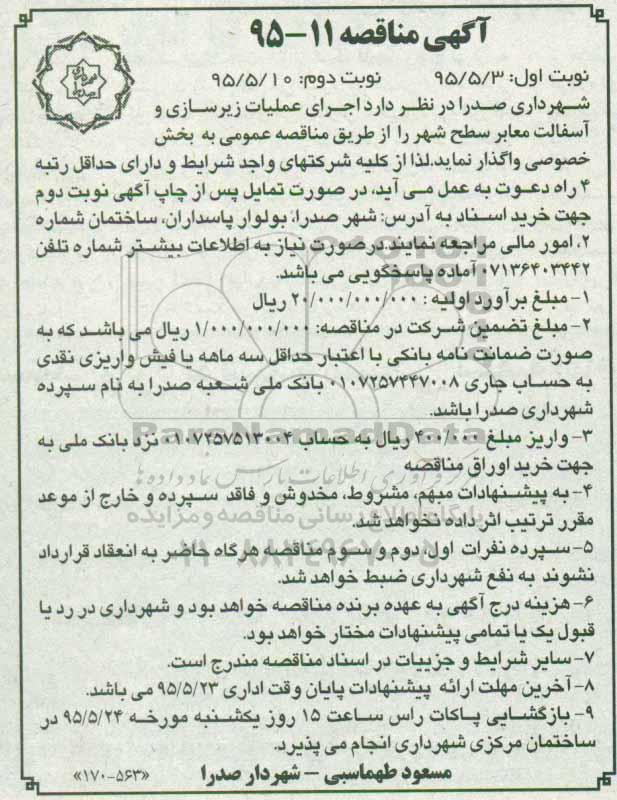 آگهی مناقصه ۱۱-۹۵
نوبت اول: ۹۵/۵/۳ نوبت دوم: ۹۵/۵/۱۰
شهرداری صدرا در نظر دارد اجرای عملیات زیرسازی و
آسفالت معابر سطح شهر را از طریق مناقصه عمومی به بخش
خصوصی واگذار نماید.لذا از کلیه شرکتهای واجد شرایط و دارای حداقل رتبه
۴ راه دعوت به عمل می آید، در صورت تمایل پس از چاپ آگهی نوبت دوم
جهت خرید اسناد به آدرس: شهر صدرا، بولوار پاسداران، ساختمان شماره
۲، امور مالی مراجعه نمایند.درصورت نیاز به اطلاعات بیشتر شماره تلفن
۰۷۱۳۶۴۰۳۴۴۲ آماده پاسخگویی می باشد.
۱- مبلغ برآورد اولیه : ۲۰/۰۰۰/۰۰۰/۰۰۰ ریال
۲- مبلغ تضمین شرکت در مناقصه: ۱/۰۰۰/۰۰۰/۰۰۰ ریال می باشد که به
صورت ضمانت نامه بانکی با اعتبار حداقل سه ماهه یا فیش واریزی نقدی
به حساب جاری ۰۱۰۷۲۵۷۴۴۷۰۰۸ بانک ملی شعبه صدرا به نام سپرده
شهرداری صدرا باشد.
ParsNamadData
۳- واریز مبلغ ۴۰۰/۰۰۰ ریال به حساب ۰۱۰۷۲۵۷۵۱۳۰۰۴ نزد بانک ملی به
جهت خرید اوراق مناقصه
۴- به پیشنهادات مبهم، مشروط، مخدوش و فاقد سپرده و خارج از موعد
مقرر ترتیب اثر داده نخواهد شد.
پایگاه اطلاع رسانی مناقصه و مزایده
۵- سپرده نفرات اول، دوم و سوم مناقصه هرگاه حاضر به انعقاد قرارداد
نشوند به نفع شهرداری ضبط خواهد شد.
۶- هزینه درج آگهی به عهده برنده مناقصه خواهد بود و شهرداری در رد یا
قبول یک یا تمامی پیشنهادات مختار خواهد بود.
۷- سایر شرایط و جزییات در اسناد مناقصه مندرج است.
۸- آخرین مهلت ارائه پیشنهادات پایان وقت اداری ۹۵/۵/۲۳ می باشد.
۹- بازگشایی پاکات راس ساعت ۱۵ روز یکشنبه مورخه ۹۵/۵/۲۴ در
ساختمان مرکزی شهرداری انجام می پذیرد.
مسعود طهماسبی - شهردار صدرا «۱۷۰-۵۶۳»